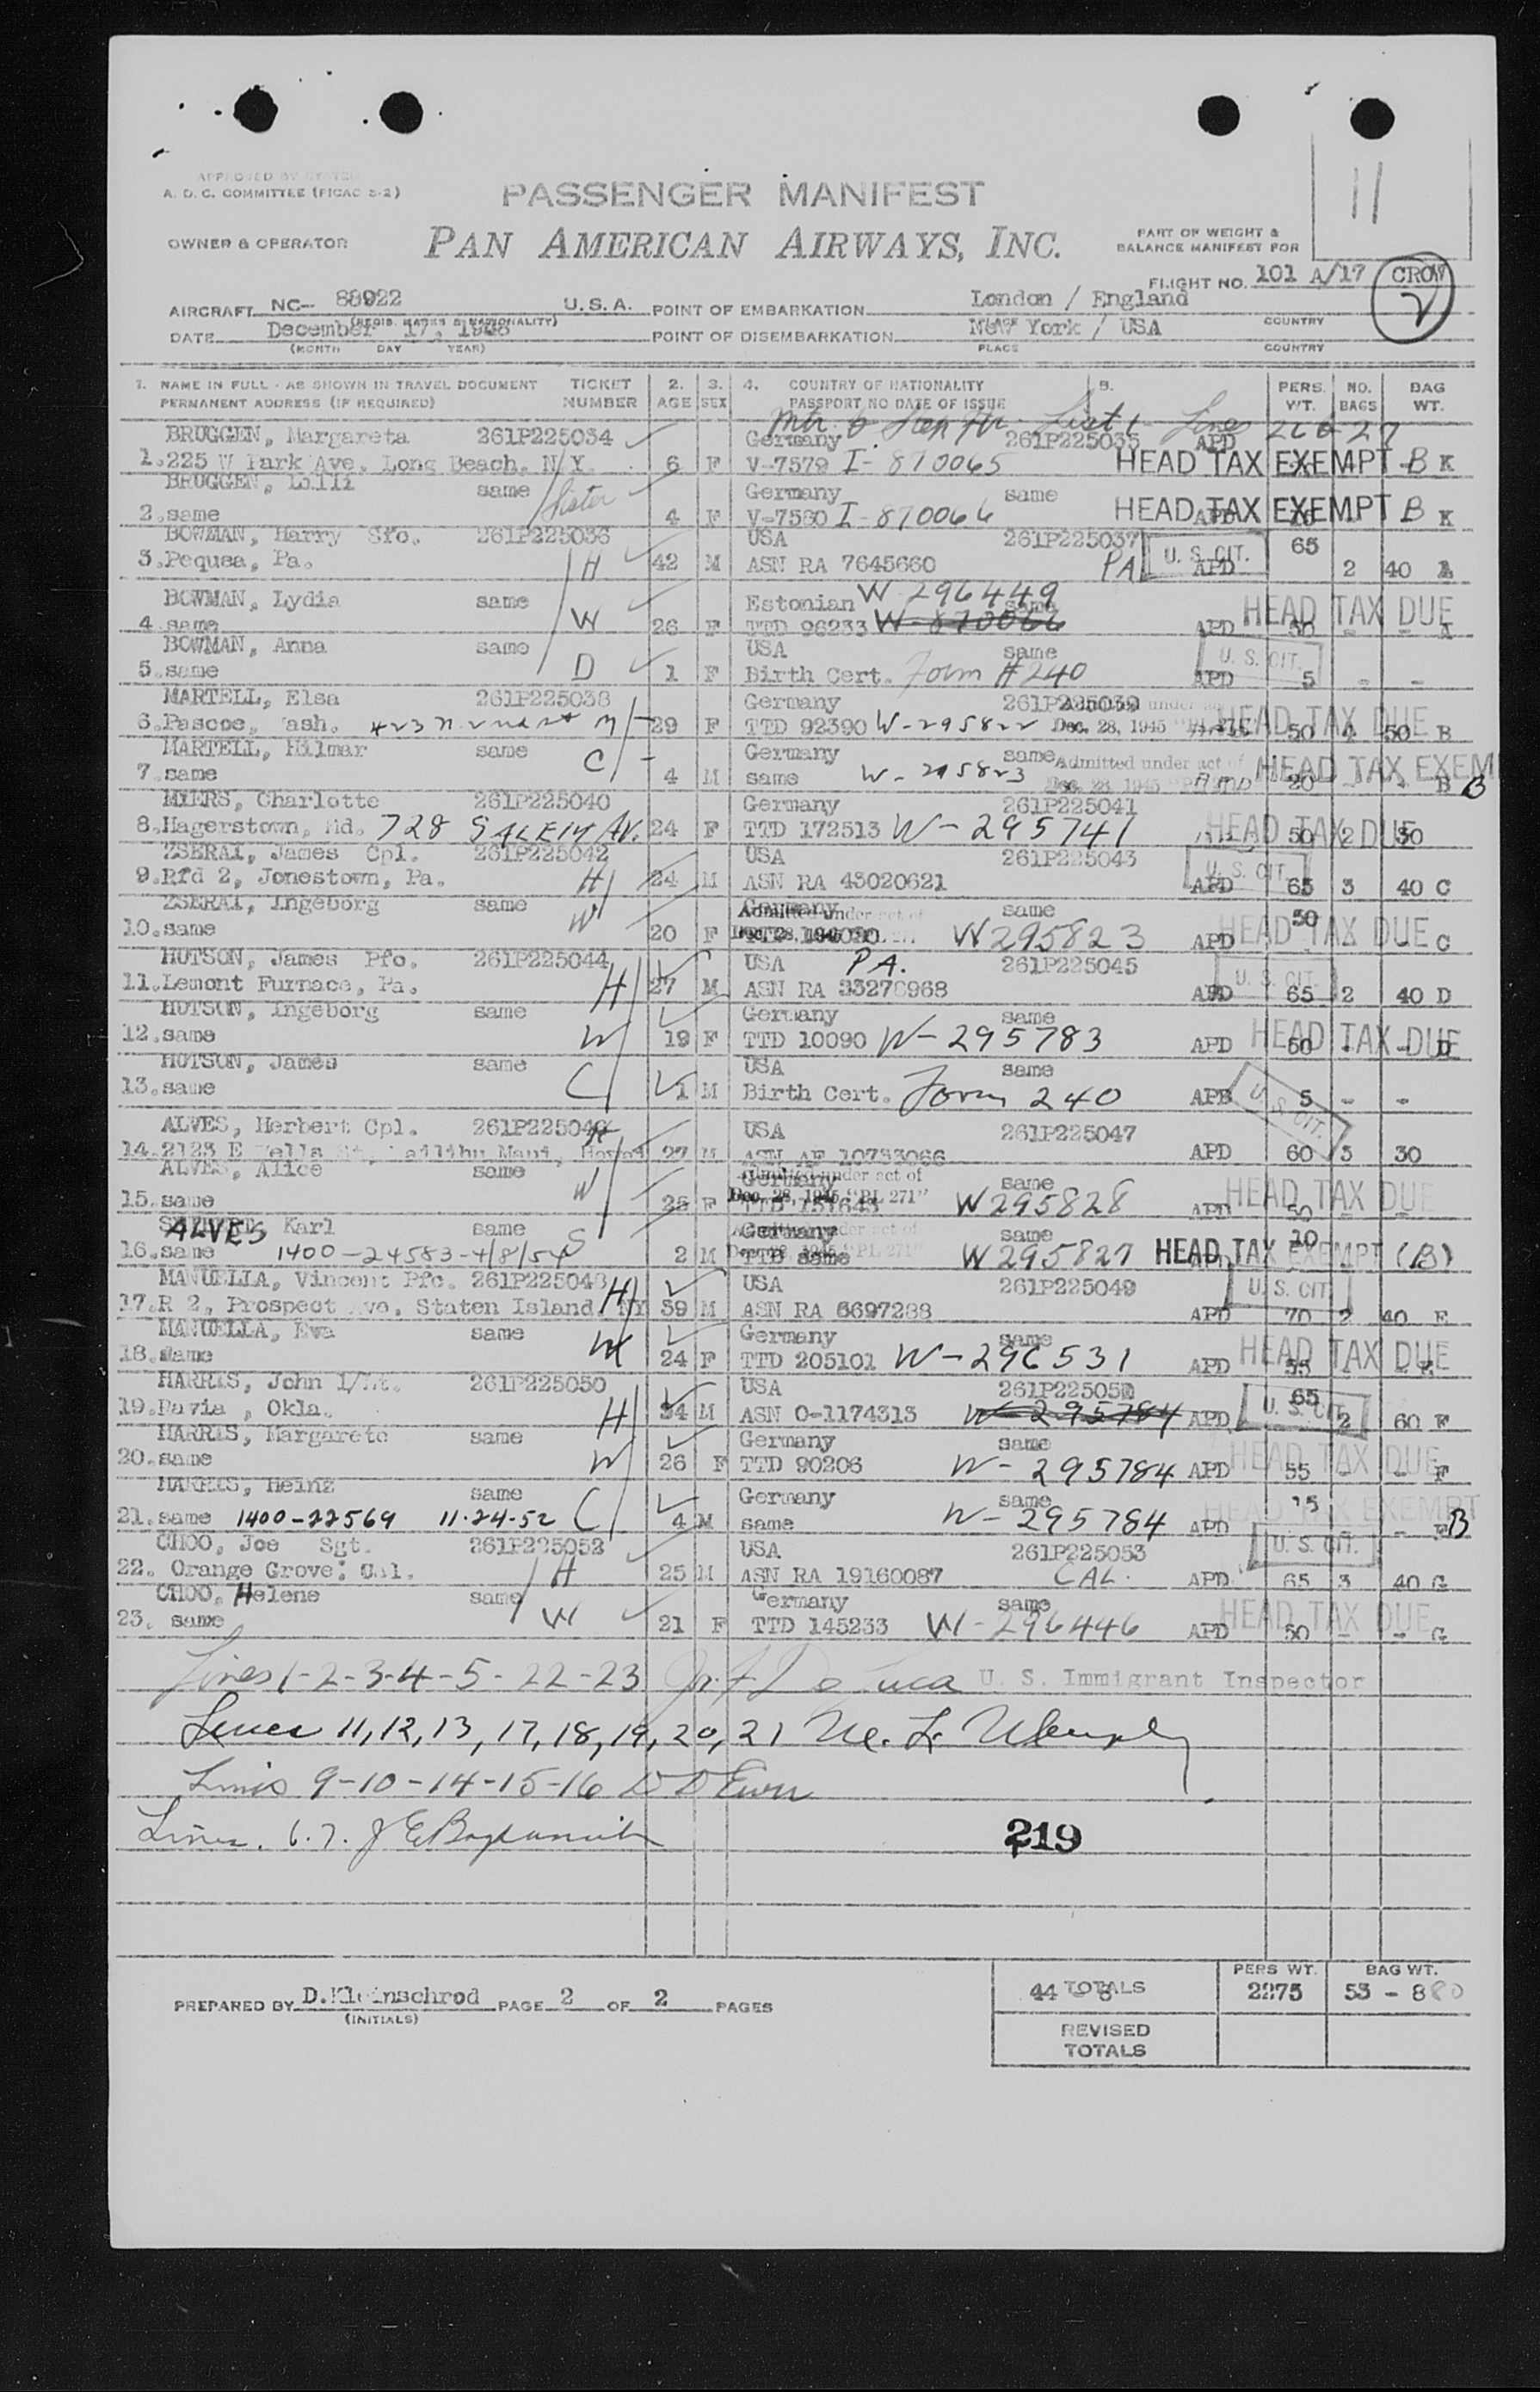 APPROVED BY
A. D. C. COMMITTEE (FICAC 5-2)
PASSENGER MANIFEST
OWNER & OPERATOR
PAN AMERICAN AIRWAYS, INC.
PART OF WEIGHT &
BALANCE MANIFEST FOR
11
FLIGHT NO. 101 A/17 CROW
2
AIRCRAFT NC- 88922 U.S.A. POINT OF EMBARKATION London / England
(REGIS. MARKS & NATIONALITY) COUNTRY
DATE December 17, 1948 POINT OF DISEMBARKATION New York / USA
(MONTH DAY YEAR) PLACE COUNTRY
1. NAME IN FULL - AS SHOWN IN TRAVEL DOCUMENT TICKET 2. 3. 4. COUNTRY OF NATIONALITY 5. PERS. NO. BAG
PERMANENT ADDRESS (IF REQUIRED) NUMBER AGE SEX PASSPORT NO DATE OF ISSUE WT. BAGS WT.
BRUGGEN, Margareta 261P225034 Germany 261P225035 APD
1. 225 W Park Ave. Long Beach. N Y. 6 F V-7579 I-870065 HEAD TAX EXEMPT B K
BRUGGEN, Lolli same Sister Germany same
2. same 4 F V-7580 I-870066 HEAD TAX EXEMPT B K
BOWMAN, Harry Sfc. 261P225036 USA 261P225037 U. S. CIT. 65
3. Pequea, Pa. H 42 M ASN RA 7645660 PA APD 2 40 A
BOWMAN, Lydia same Estonian W 296449 same HEAD TAX DUE
4. same W 26 F TTD 96233 W-870066 APD 50 - - A
BOWMAN, Anna same USA same U. S. CIT.
5. same D 1 F Birth Cert. Form # 240 APD 5 - -
MARTELL, Elsa 261P225038 Germany 261P225039
6. Pascoe, Wash. 29 F TTD 92390 W-295822 Dec. 28, 1945 HEAD TAX DUE 50 4 50 B
MARTELL, Hilmar same C Germany same Admitted under act of HEAD TAX EXEM
7. same 4 M same W-295823 20 - - B B
MYERS, Charlotte 261P225040 Germany 261P225041
8. Hagerstown, Md. 728 SALEM AV. 24 F TTD 172513 W-295741 HEAD TAX DUE 50 2 50
ZSERAI, James Cpl. 261P225042 USA 261P225043 U. S. CIT.
9. Rfd 2, Jonestown, Pa. H 24 M ASN RA 43020621 APD 65 3 40 C
ZSERAI, Ingeborg same W Germany Admitted under act of same 50
10. same 20 F W295823 APD HEAD TAX DUE - C
HUTSON, James Pfc. 261P225044 USA PA. 261P225045 U. S. CIT.
11. Lemont Furnace, Pa. H 27 M ASN RA 33278968 APD 65 2 40 D
HUTSON, Ingeborg same Germany same
12. same W 19 F TTD 10090 W-295783 APD HEAD TAX DUE 50 - - D
HUTSON, James same USA same
13. same C 1 M Birth Cert. Form 240 APD U. S. CIT. 5 - -
ALVES, Herbert Cpl. 261P225046 H USA 261P225047
14. 2123 E Wells 27 M ASN AF 10733066 APD 60 3 30
ALVES, Alice same W Germany Admitted under act of same
15. same 25 F Dec. 28, 1945 "PL 271" W295828 APD HEAD TAX DUE 50 - -
ALVES Karl same S Germany same 10
16. same 1400-24583-4/8/54 2 M TTD same W295827 HEAD TAX EXEMPT (B)
MANUELLA, Vincent Pfc. 261P225048 H USA 261P225049 U. S. CIT.
17. R 2, Prospect Ave, Staten Island NY 39 M ASN RA 6697288 APD 70 2 40 E
MANUELLA, Eva same Germany same
18. same W 24 F TTD 205101 W-296531 APD HEAD TAX DUE 55 - - E
HARRIS, John 1/Lt. 261P225050 USA 261P22505 65 U. S. CIT.
19. Davis, Okla. H 34 M ASN O-1174313 W-295784 APD 2 60 F
HARRIS, Margarete same Germany same
20. same W 26 F TTD 90206 W-295784 APD HEAD TAX DUE 55 - - F
HARRIS, Heinz same Germany same 15
21. same 1400-22569 11-24-52 C 4 M same W-295784 APD HEAD TAX EXEMPT - F B
CHOO, Joe Sgt. 261P225052 USA 261P225053 U. S. CIT.
22. Orange Grove: Cal. H 25 M ASN RA 19160087 CAL. APD 65 3 40 G
CHOO. Helene same Germany same
23. same W 21 F TTD 145233 W-296446 APD HEAD TAX DUE 50 - - G
Lines 1-2-3-4-5-22-23 U. S. Immigrant Inspector
Lines 11, 12, 13, 17, 18, 19, 20, 21
Lines 9-10-14-15-16
Lines. 6.7.
219
PREPARED BY D. Kleinschrod PAGE 2 OF 2 PAGES
(INITIALS)
PERS WT. BAG WT.
44 - 8 TOTALS 2275 53 - 880
REVISED
TOTALS